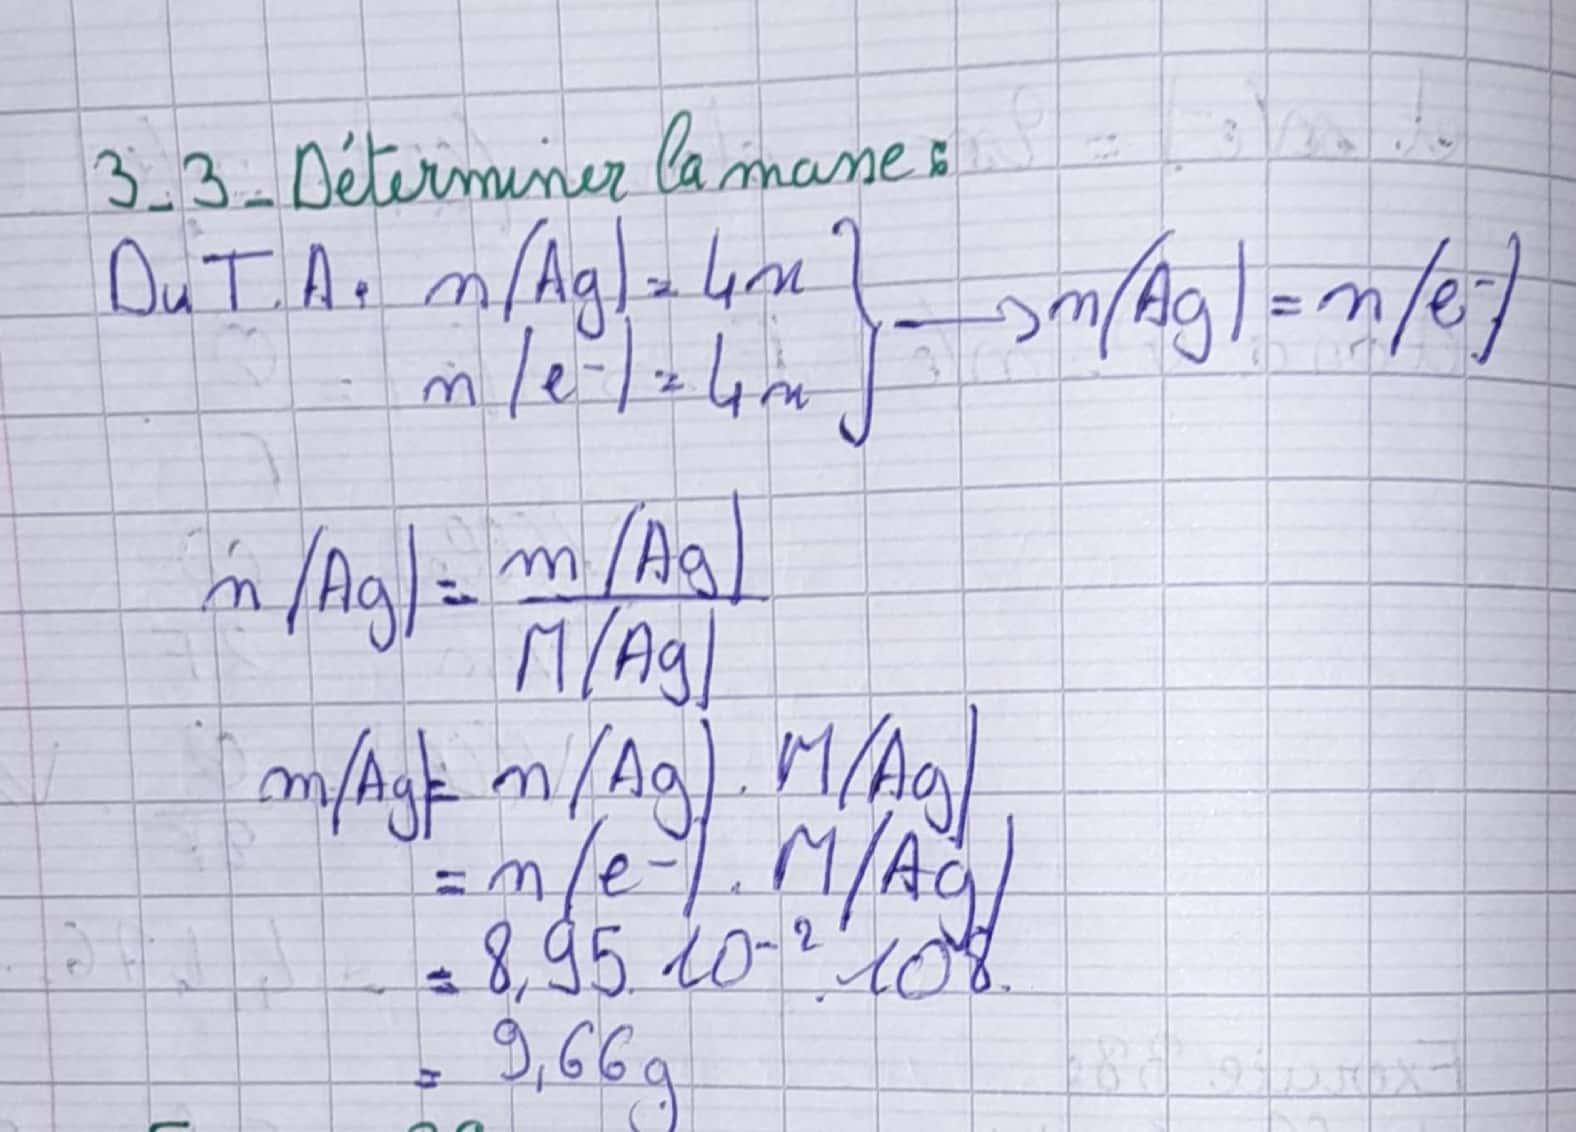 3-3- Déterminer la masse :
Du T.A. n(Ag) = 4x } → n(Ag) = n(e-)
n(e-) = 4x
n(Ag) = m(Ag)
M(Ag)
m(Ag) = n(Ag) . M(Ag)
= n(e-) . M(Ag)
= 8,95.10^-2 . 108.
= 9,66g